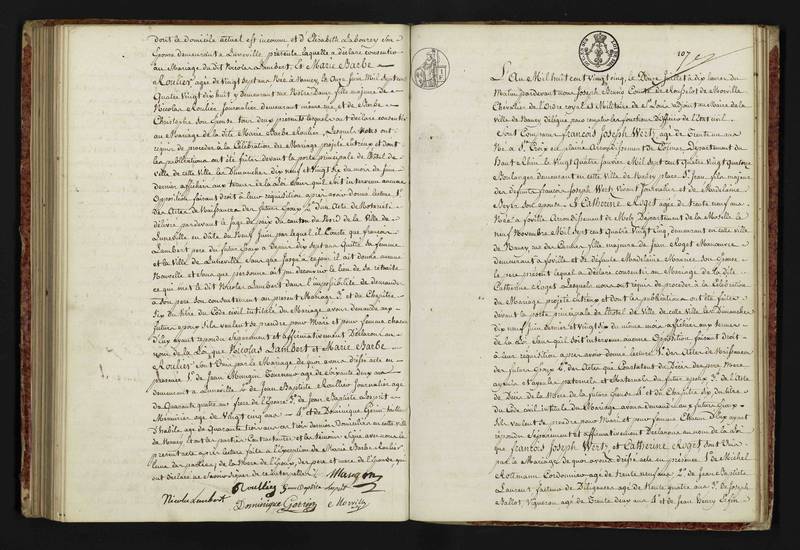 dont le domicile actuel est inconnu et d'Elisabeth Labourey son
Epouse demeurant à Luneville présente laquelle a déclaré consentir
au Mariage dudit Nicolas Lambert. Et Marie Barbe
Roulier agée de vingt sept ans Née à Nancy, le onze Juin Mil Sept cent
Quatre vingt dix huit y demeurant rue Notre Dame fille majeure de
Nicolas Roulier, Journalier demeurant même rue, et de Barbe
Christophe son Epouse tous deux présents lesquels ont déclaré consentir
au Mariage de la dite Marie Barbe Roulier, Lesquels nous ont
requis de procéder à la Célébration du Mariage projeté entr'eux et dont
les publications ont été faites devant la porte principale de l'hôtel de
Ville de cette ville les Dimanches dix neuf et vingt six du mois de Juin
dernier affichées aux termes de la Loi sans qu'il soit intervenu aucune
Opposition, faisant droit à leur réquisition après avoir donné lecture 1°
des Actes de Naissance des futurs Epoux 2° d'un Acte de Notoriété
délivré par devant le Juge de paix du canton du Nord de la Ville de
Luneville en date du Neuf Juin par lequel il Conste que françois
Lambert père du futur Epoux a depuis dix sept ans quitté sa femme
et la Ville de Luneville sans que jusqu'à ce jour il ait donné aucune
Nouvelle et sans que personne ait pu découvrir le lieu de sa retraite
ce qui met le dit Nicolas Lambert dans l'impossibilité de demander
à son père son consentement au présent Mariage 3° et du Chapitre
Six du titre du Code civil intitulé du Mariage avons demandé aux
futurs époux s'ils veulent se prendre pour Mari et pour femme chacun
d'Eux ayant répondu séparément et affirmativement Déclarons au
nom de la Loi que Nicolas Lambert et Marie Barbe
Roulier sont Unis par le Mariage de quoi avons dressé acte en
présence 1° de Jean Mougin Tourneur agé de soixante deux ans
demeurant à Luneville 2° de Jean Baptiste Roullier Journalier agé
de Quarante quatre ans frère de l'Epouse 3° de Jean Baptiste
Menuisier agé de vingt cinq ans 4° et de Dominique Tailleur
d'habits agé de Quarante trois ans ces trois derniers Domiciliés en cette ville
de Nancy Et ont les parties Contractantes et les témoins Signé avec nous le
présent acte après lecture faite à l'Exception de Marie Barbe Roulier
l'une des parties, de la Mère de l'Epoux, des père et mère de l'Epouse qui
ont déclaré ne savoir signer de ce interpellés
Mougin
Roullier
Nicolas Lambert
Dominique
Morville
107
L'An Mil huit cent vingt cinq, le Douze Juillet à dix heures du
Matin pardevant nous Joseph Comte de Morville
Chevalier de l'Ordre royal et Militaire de St Louis adjoint au Maire de la
Ville de Nancy délégué, pour remplir les fonctions d'officier de l'Etat civil.
Sont Comparus françois Joseph Wertz agé de Trente un ans
Né à Ste Croix Arrondissement de Colmar Département du
haut Rhin le vingt quatre Janvier Mil Sept cent Quatre vingt Quatorze
Boulanger demeurant en cette Ville de Nancy place St Jean fils majeur
des défunts françois Joseph Wertz vivant Journalier et de Madelaine
Beyer son épouse Et Catherine Roget agée de trente neuf ans
Née à foville Arrondissement de Metz Département de la Moselle le
neuf Novembre Mil Sept cent Quatre vingt cinq, demeurant en cette ville
de Nancy rue des fille majeure de Jean Roget Manœuvre
demeurant à foville et de défunte Madelaine son Epouse
le père présent lequel a déclaré consentir au Mariage de la dite
Catherine Roget Lesquels nous ont requis de procéder à la Célébration
du Mariage projeté entr'eux et dont les publications ont été faites
devant la porte principale de l'hôtel de Ville de cette Ville les Dimanches
dix neuf Juin dernier et vingt six du même mois affichées aux termes
de la Loi, sans qu'il soit intervenu aucune Opposition faisant droit
à leur réquisition après avoir donné lecture 1° des Actes de Naissance
des futurs Epoux 2° des Actes qui Constatent le Décès des père Mère
ayeuls et ayeules paternels et Maternels du futur époux 3° de l'Acte
de Décès de la Mère de la future Epouse 4° et du Chapitre six du titre
du Code civil intitulé du Mariage avons demandé aux futurs Epoux
s'ils veulent se prendre pour Mari et pour femme Chacun d'Eux ayant
répondu séparément et affirmativement Déclarons au nom de la Loi
que françois Joseph Wertz et Catherine Roget sont Unis
par le Mariage de quoi avons dressé acte en présence 1° de Michel
Rottmann Cordonnier agé de trente neuf ans 2° de Jean Baptiste
Laurent facteur de Diligences agé de trente quatre ans 3° de Joseph
Ballot, Vigneron agé de Trente deux ans 4° et de Jean Henry